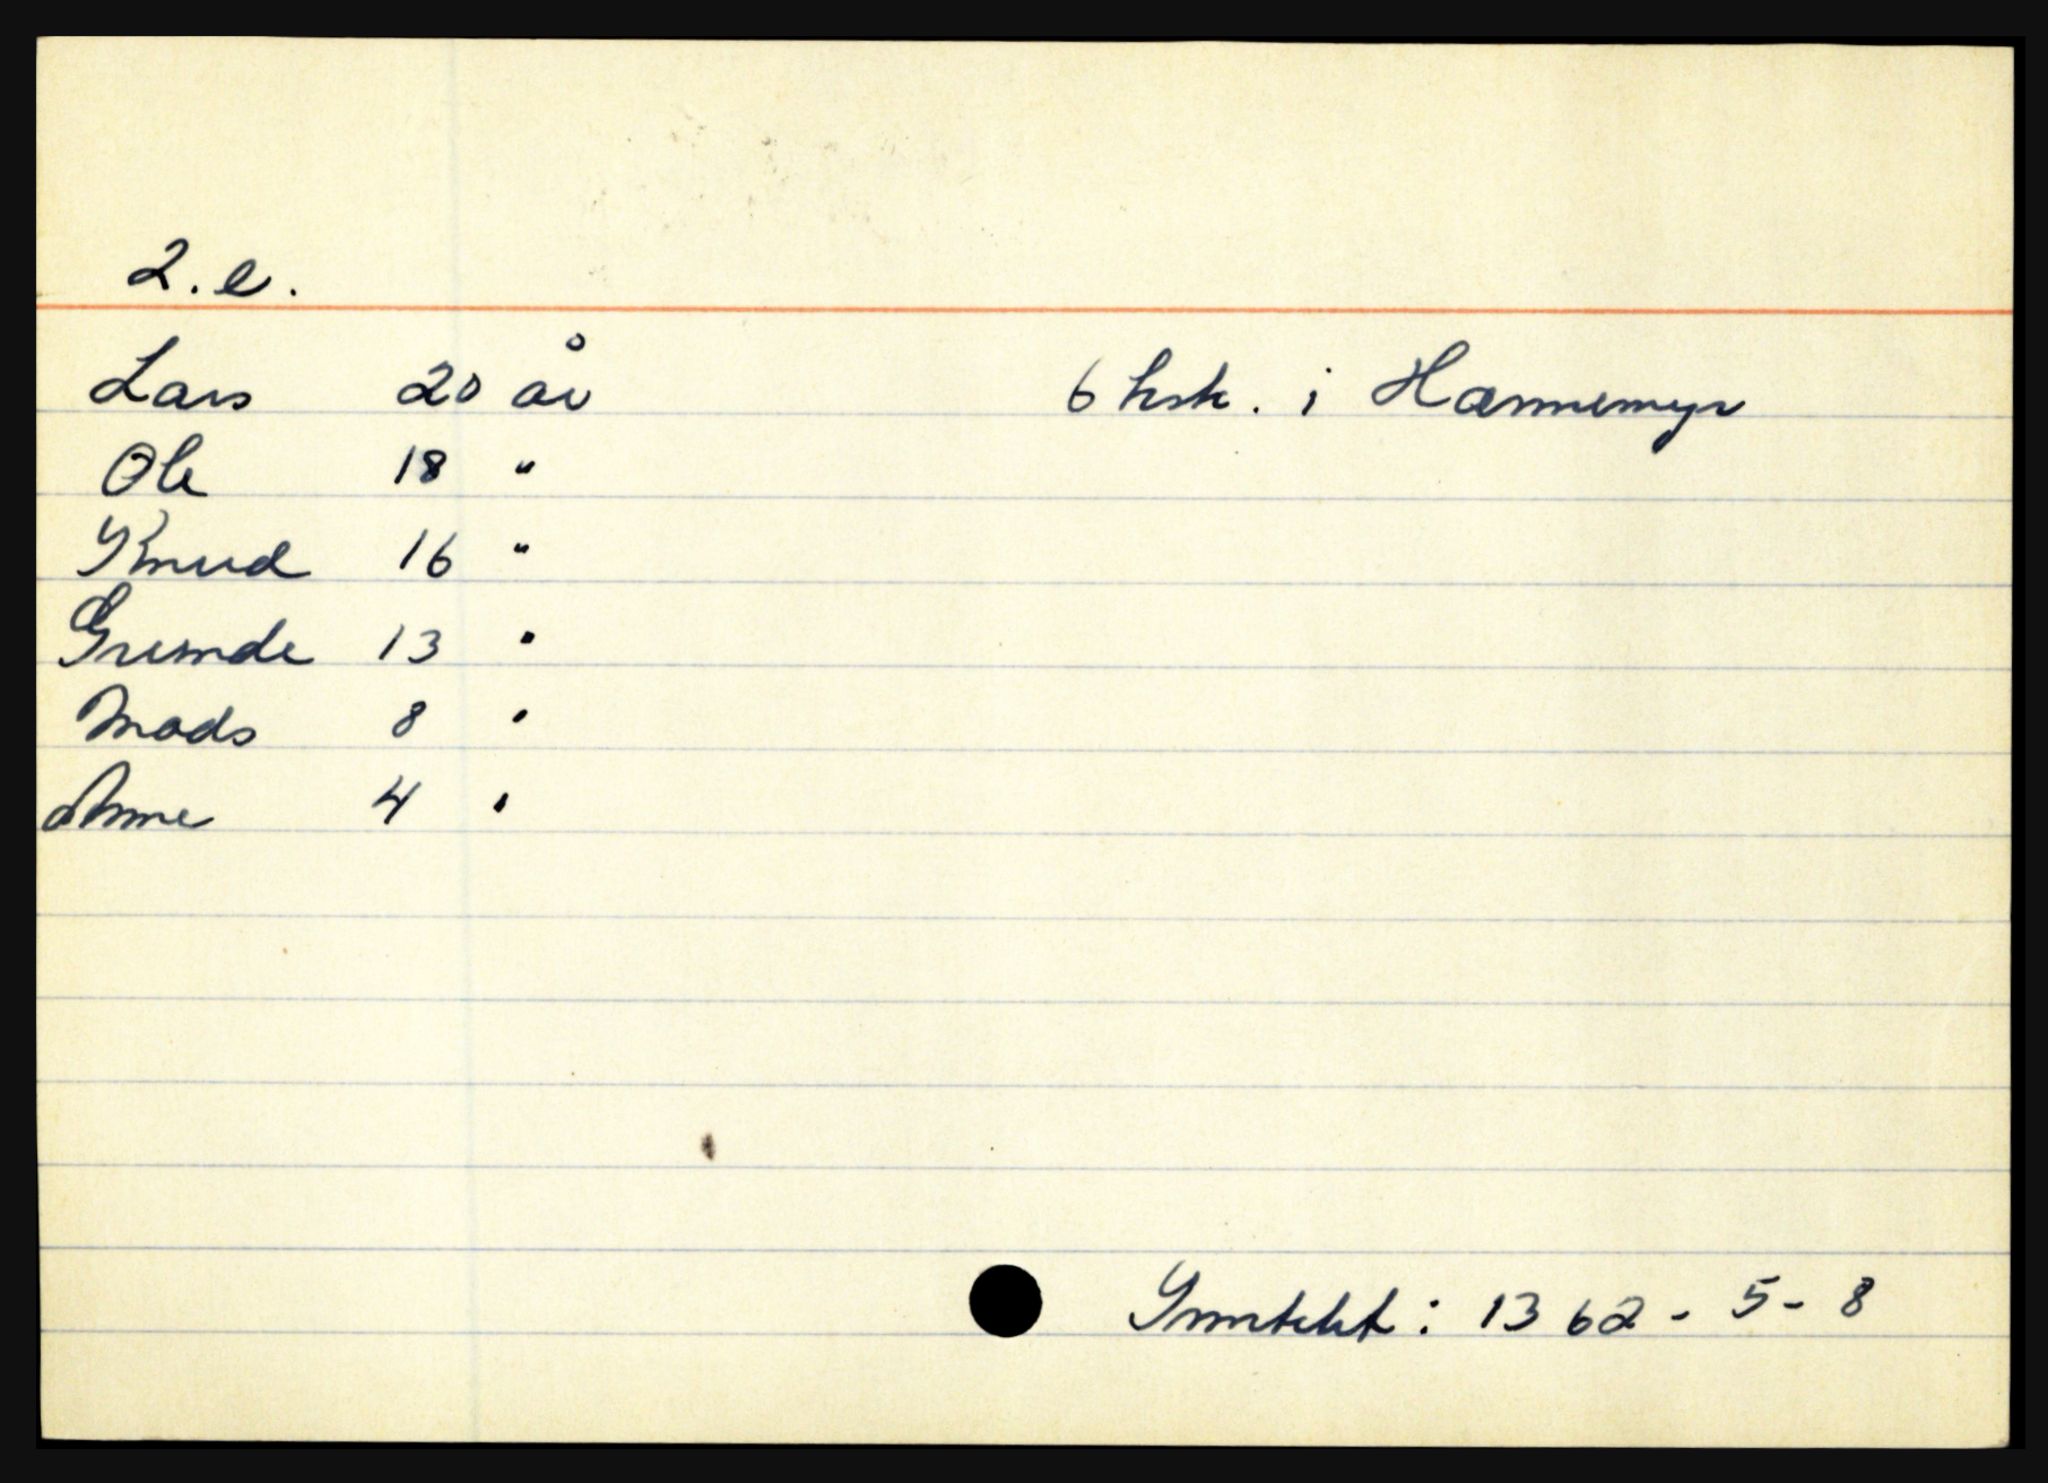 2.e.
Lars 20 år 6 hsk. i Hannemyr
Ole 18 "
Knud 16 "
Grunde 13 "
Mads 8 "
Anne 4 "
Inntekt: 1362 - 5 - 8